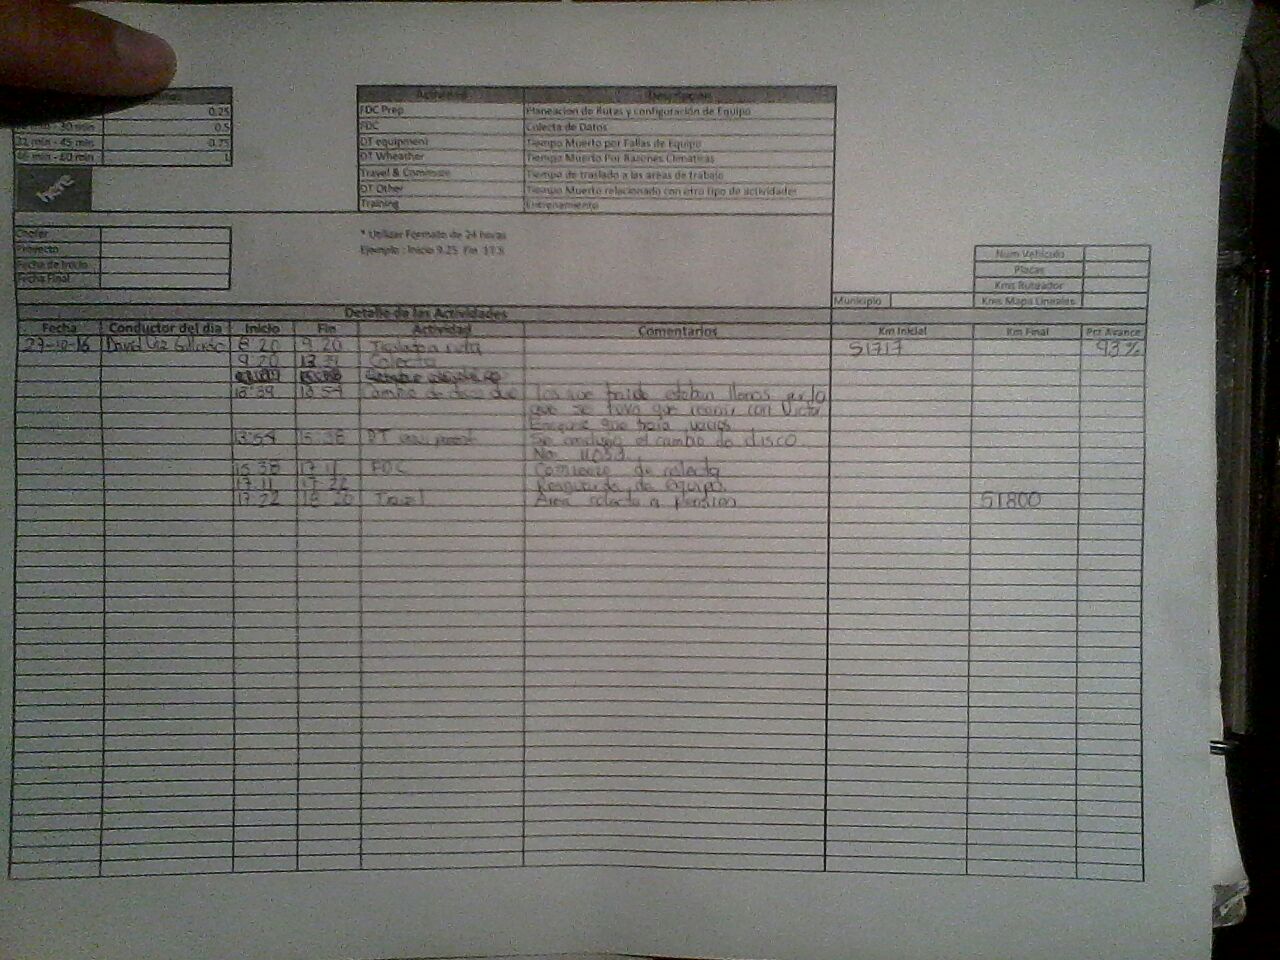 0.25
30 min 0.5
31 min - 45 min 0.75
46 min - 60 min 1
here
Actividad Descripcion
FDC Prep Planeacion de Rutas y configuración de Equipo
FDC Colecta de Datos
DT equipment Tiempo Muerto por Fallas de Equipo
DT Wheather Tiempo Muerto Por Razones Climaticas
Travel & Commute Tiempo de traslado a las areas de trabajo
DT Other Tiempo Muerto relacionado con otro tipo de actividades
Training Entrenamiento
Chofer
Proyecto
Fecha de Inicio
Fecha Final
* Utilizar Formato de 24 horas
Ejemplo : Inicio 9.25 Fin 17.5
Num Vehiculo
Placas
Kms Ruteador
Municipio Kms Mapa Lineales
Detalle de las Actividades
Fecha Conductor del dia Inicio Fin Actividad Comentarios Km Inicial Km Final Pct Avance
27-10-16 David 8 20 9 20 51717 93%
9 20 13 39 Colecta
13:39 13 54 Cambio de disco los que traide estaban llenos
que se tuvo que reunir con Victor
Enrique que traia vacios
13:54 15 38 DT Se el cambio de disco
No.
15 38 17 11 FDC Comienze de colecta
17.11 17 22 Resguardo de equipo
17 22 18 20 Travel Area colecta a pension 51800